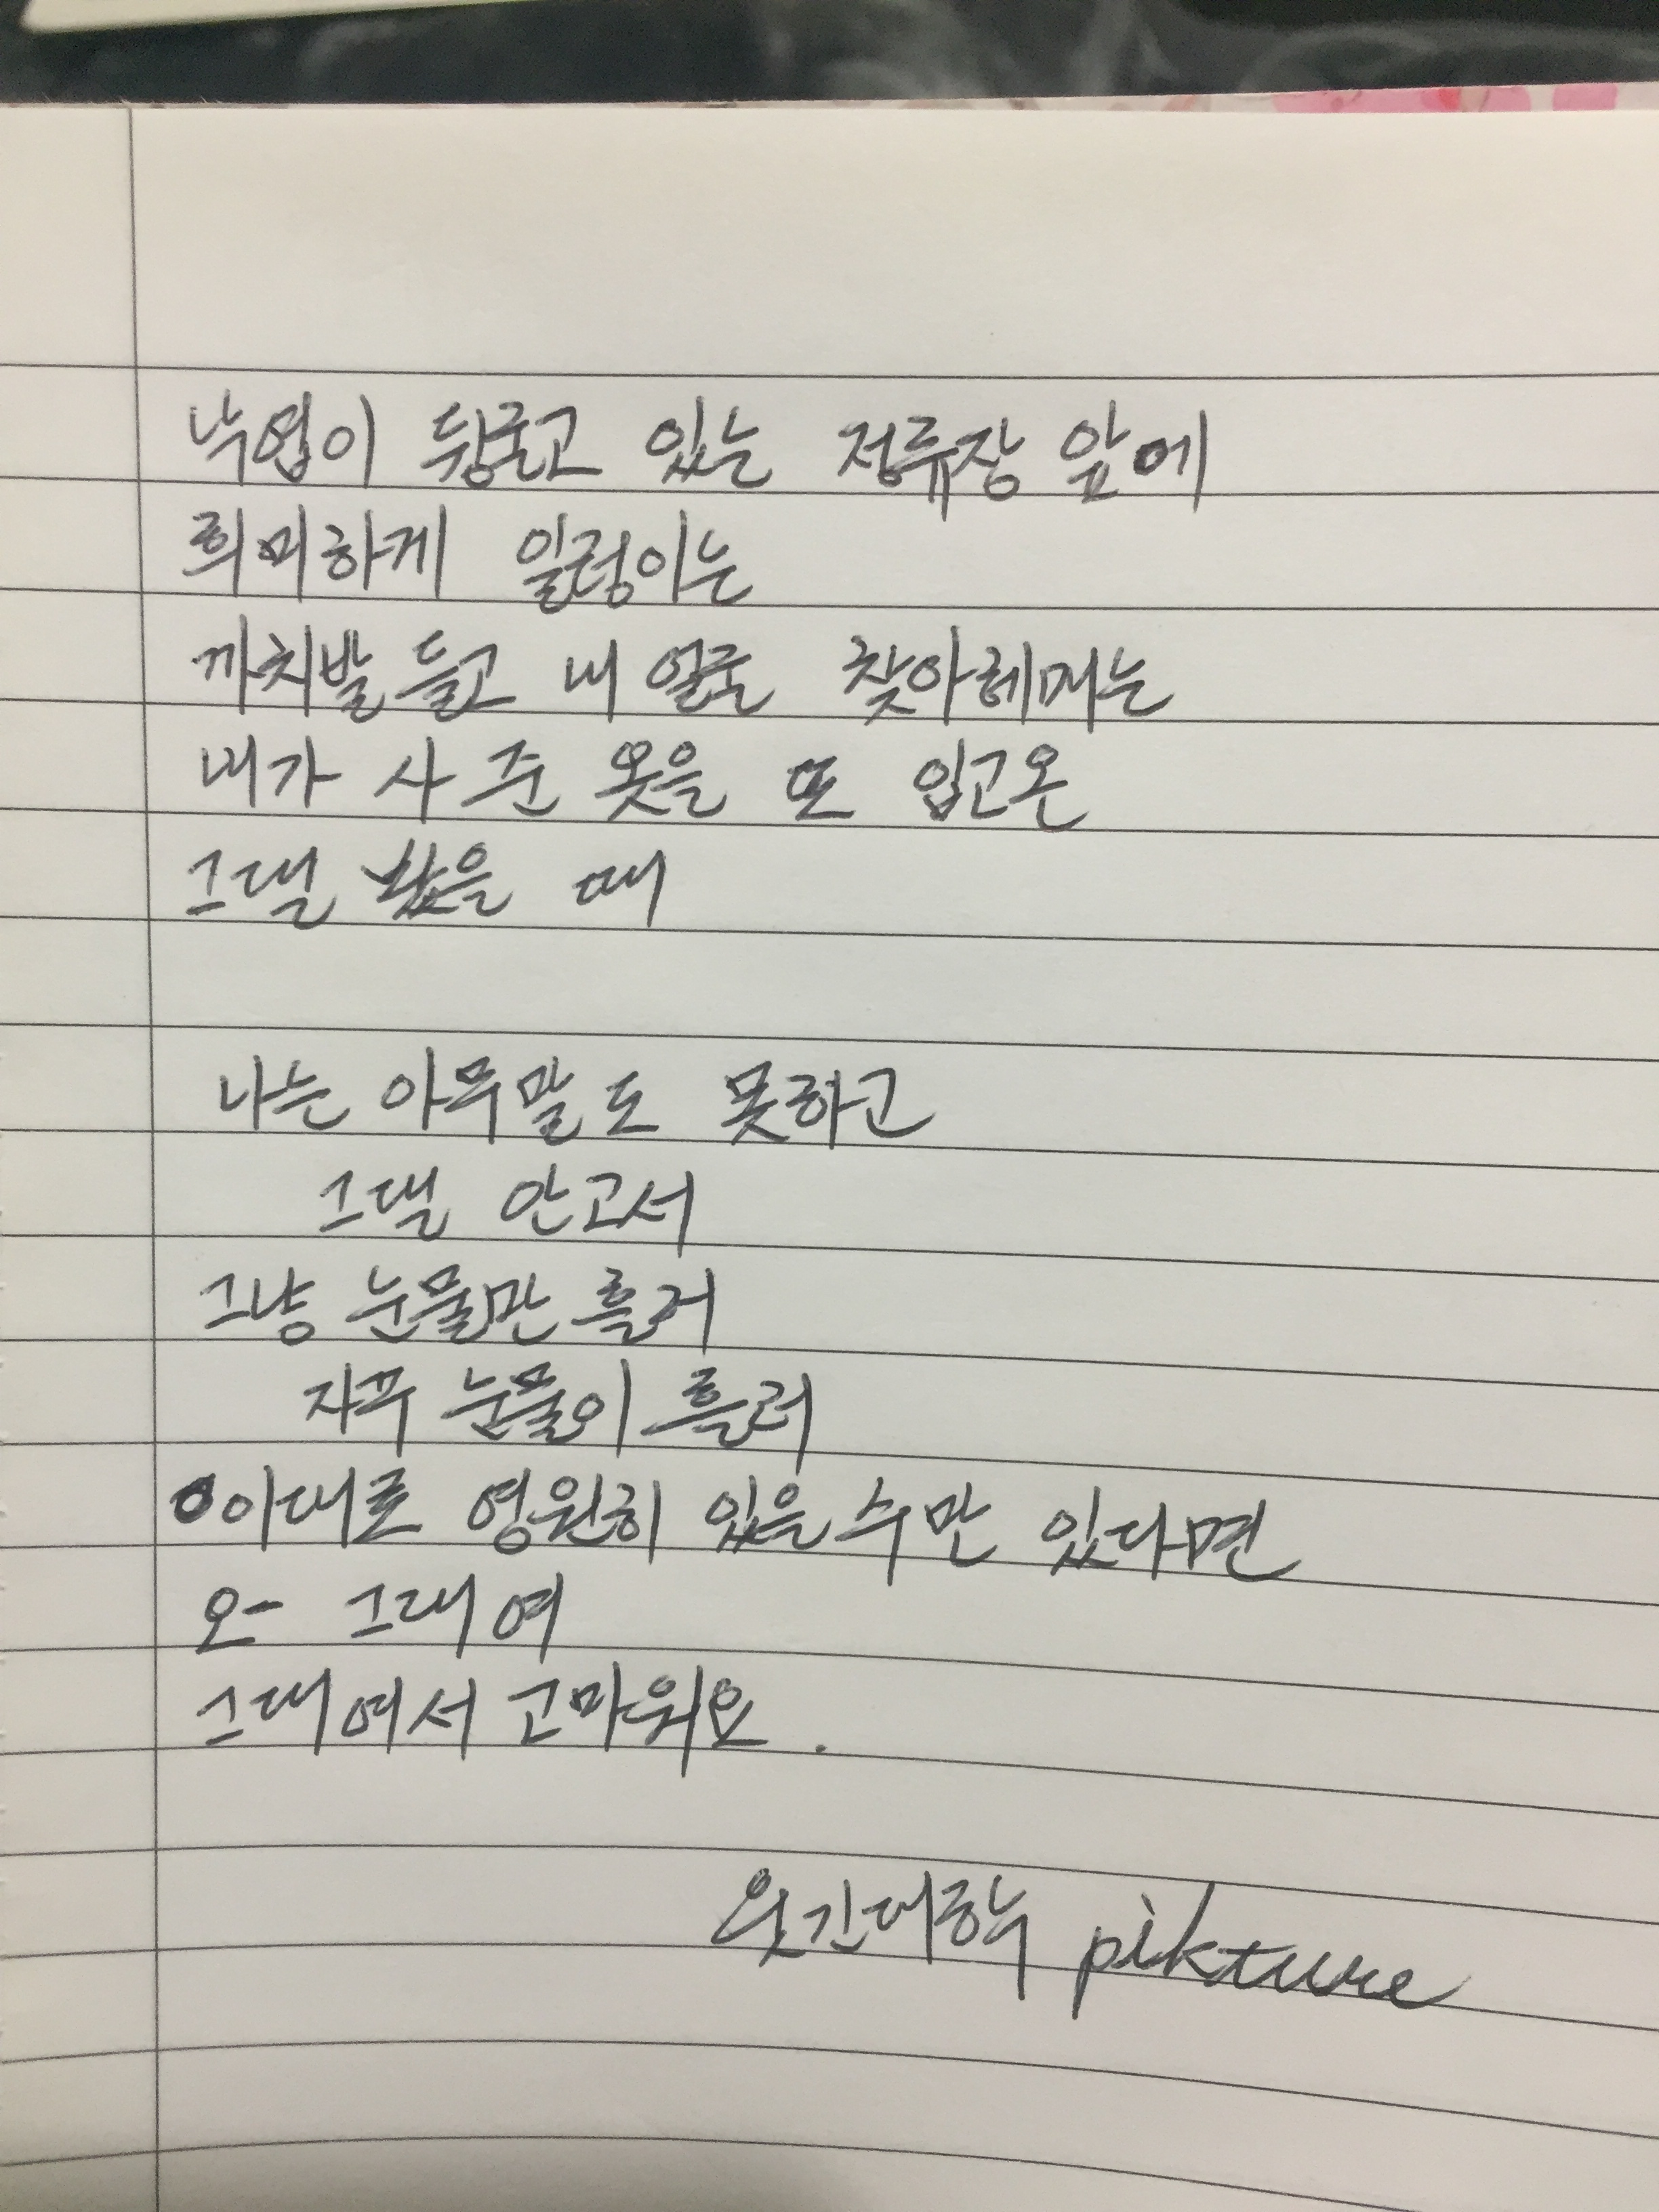 낙엽이 뒹굴고 있는 정류장 앞에
희미하게 일렁이는
까치발 들고 내 얼굴 찾아헤매는
내가 사 준 옷을 또 입고 온
그댈 봤을 때
나는 아무말도 못하고
그댈 안고서
그냥 눈물만 흘러
자꾸 눈물이 흘러
이대로 영원히 있을 수만 있다면
오- 그대여
그대여서 고마워요.
웃긴대학 pikture